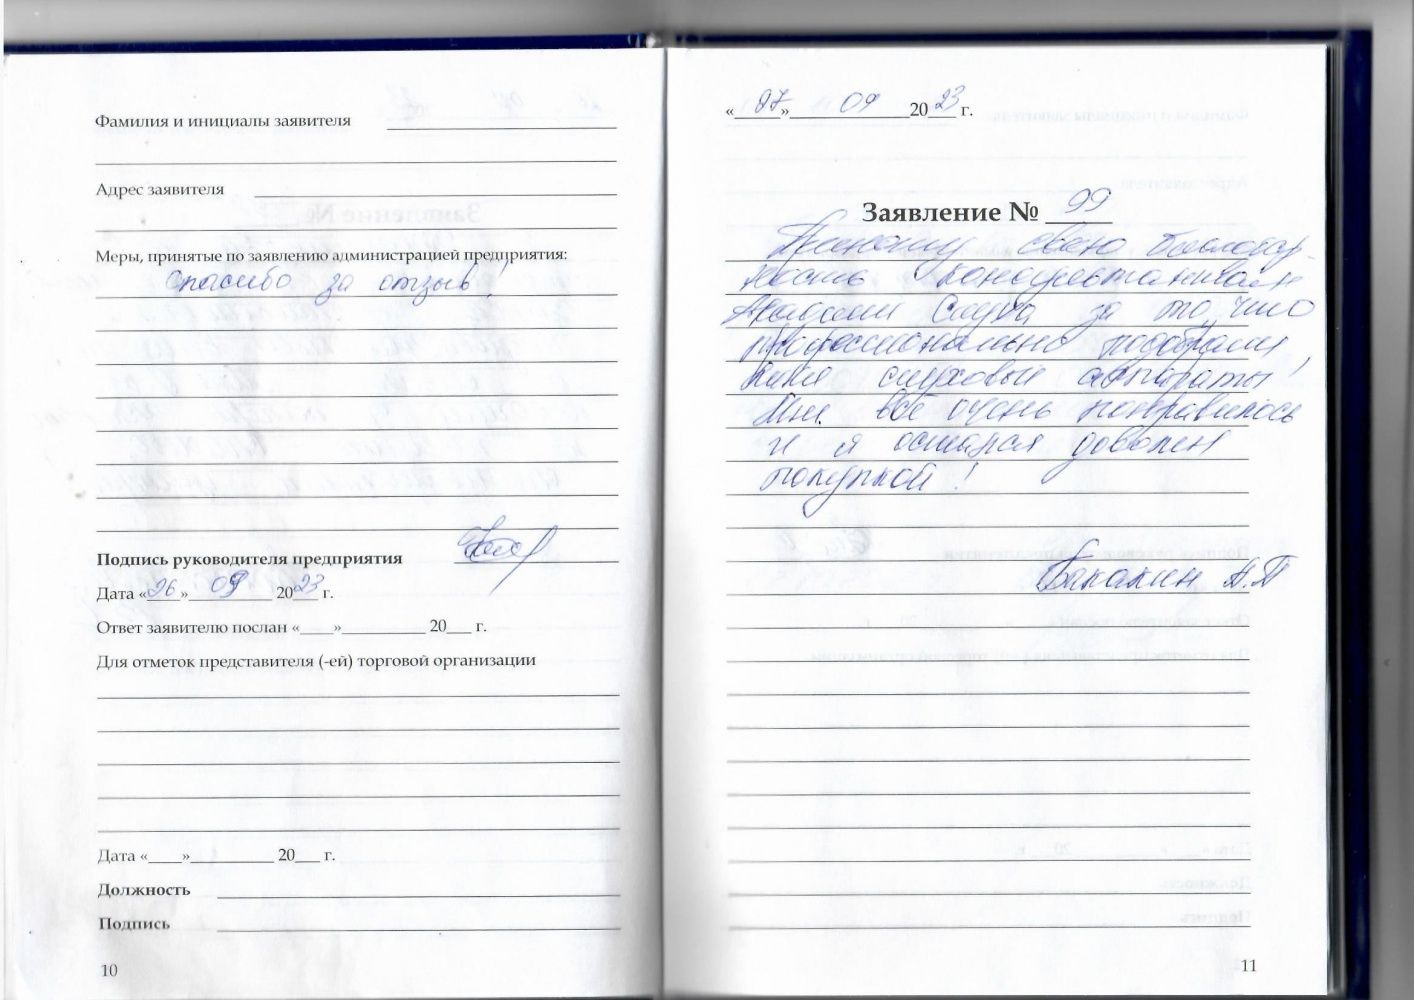 Фамилия и инициалы заявителя
Адрес заявителя
Меры, принятые по заявлению администрацией предприятия:
Спасибо за отзыв!
Подпись руководителя предприятия
Дата «26» 09 2023 г.
Ответ заявителю послан «____»__________ 20___ г.
Для отметок представителя (-ей) торговой организации
Дата «____»__________ 20___ г.
Должность
Подпись
10
«27» 09 2023 г.
Заявление № 99
Приношу свою благодар-
ность консультантам
Академии Слуха за то, что
профессионально подобрали
мне слуховые аппараты!
Мне всё очень понравилось
и я остался доволен
покупкой!
А.П.
11